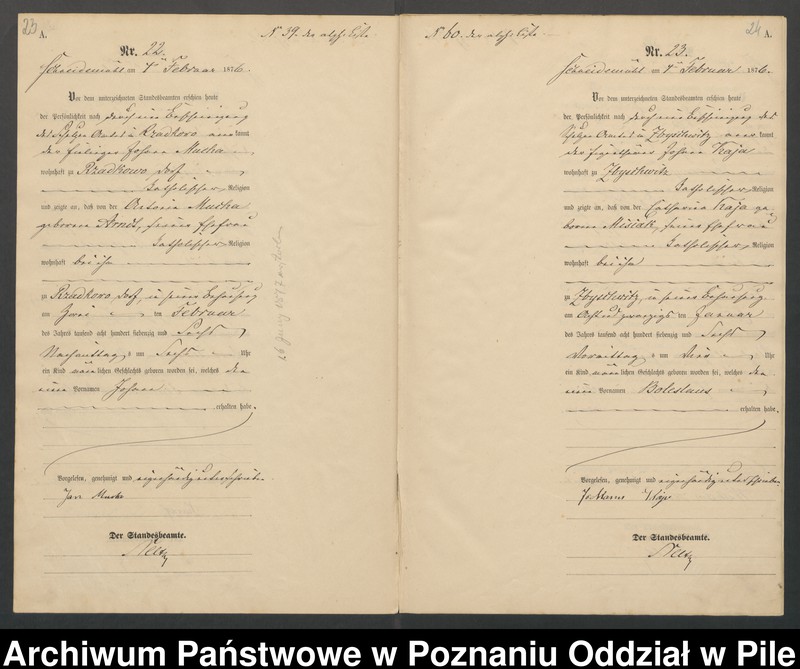 23
A.
Nr. 22.
Schneidemühl am 4ten Februar 1876.
Vor dem unterzeichneten Standesbeamten erschien heute
der Persönlichkeit nach durch eine Bescheinigung
des Schulzen Amtes zu Rzadkowo anerkannt
der Johann Mucha
wohnhaft zu Rzadkowo Dorf
katholischer Religion
und zeigte an, daß von der Antonie Mucha
geborenen Arndt, seiner Ehefrau
katholischer Religion
wohnhaft bei ihm
zu Rzadkowo Dorf, in seiner Behausung
am zwei ten Februar
des Jahres tausend acht hundert siebenzig und sechs
Nachmittags um sechs Uhr
ein Kind männlichen Geschlechts geboren worden sei, welches den
einen Vornamen Johann
erhalten habe.
Vorgelesen, genehmigt und eigenhändig unterschrieben
Jan
Der Standesbeamte.
N 39. der alph. Liste
N 60. der alph. Liste
24
A.
Nr. 23.
Schneidemühl am 4ten Februar 1876.
Vor dem unterzeichneten Standesbeamten erschien heute
der Persönlichkeit nach durch eine Bescheinigung des
Schulzen Amtes zu Zbyschewitz anerkannt
der Eigenthümer Johann Kaja
wohnhaft zu Zbyschewitz
katholischer Religion
und zeigte an, daß von der Catharina Kaja ge
borene Misiak, seiner Ehefrau
katholischer Religion
wohnhaft bei ihm
zu Zbyschewitz, in seiner Behausung
am achtundzwanzigsten Januar
des Jahres tausend acht hundert siebenzig und sechs
Vormittags um Uhr
ein Kind männlichen Geschlechts geboren worden sei, welches den
einen Vornamen Boleslaus
erhalten habe.
Vorgelesen, genehmigt und eigenhändig unterschrieben
Der Standesbeamte.
Archiwum Państwowe w Poznaniu Oddział w Pile